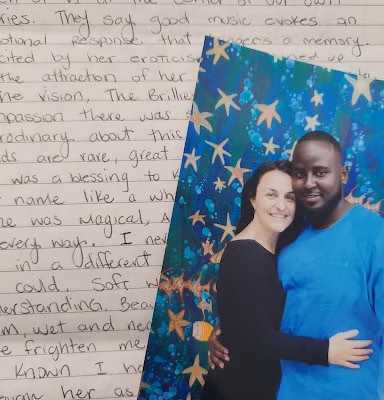 of our own
ries. They say good music evokes an
otional response that ggers a memory.
cited by her eroticis ed up
the attraction of her
he vision, The Brillie
mpassion there was s
rodinary about this
ds are rare, great
was a blessing to k
name like a wh
he was magical, A
every way. I nev
in a different
could. Soft w
derstanding, Beau
m, wet and nec
e frighten me
Known I h
her as